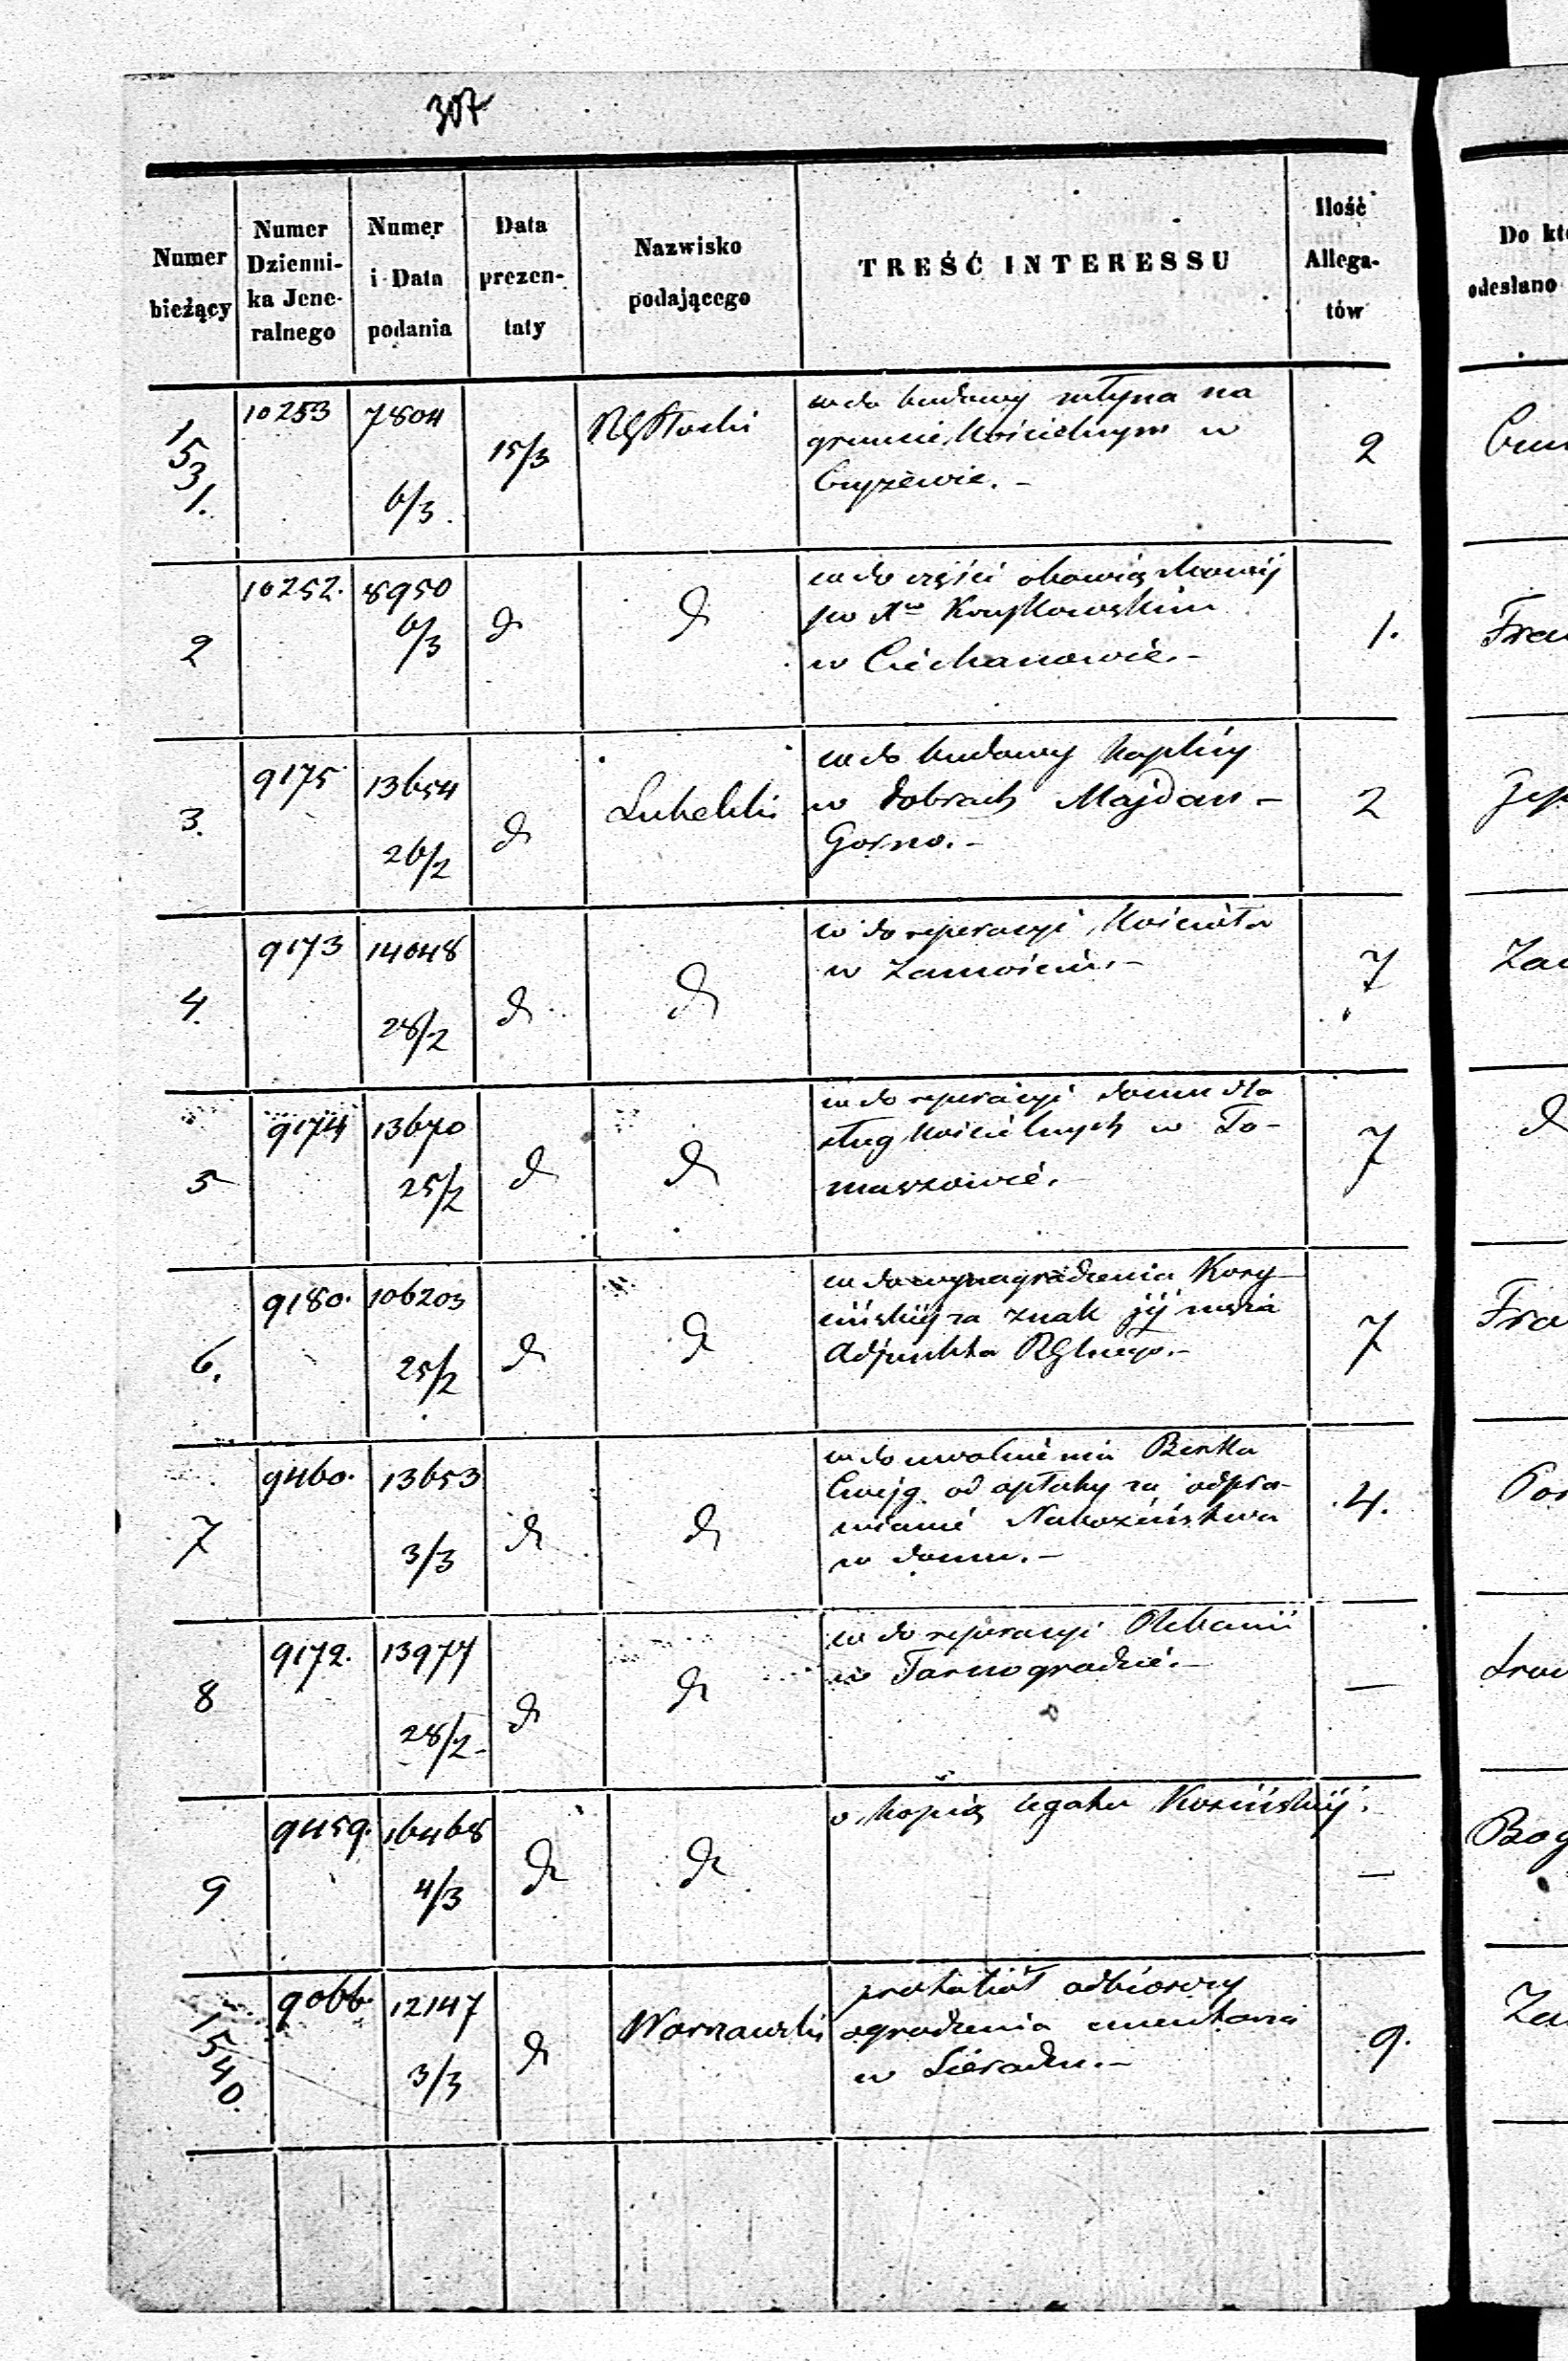 307
Numer bieżący
Numer Dzienni-ka Jene-ralnego
Numer i Data podania
Data prezen-taty
Nazwisko podającego
TREŚĆ INTERESSU
Ilość Allega-tów
Do kt
odesłano
1531.
10253
7804
6/3
15/3
RG Płocki
w do budowy młyna na
gruncie Kościelnym w
Czyżewie. -
2
2
10252.
8950
6/3
d
d
w do części obowiązkowej
w Ciechanowie. -
1.
3.
9175
13654
26/2
d
Lubelski
w do budowy Kaplicy
w dobrach Majdan -
Gorno. -
2
4.
9173
14048
28/2
d
d
w do reperacyi Kościoła
w Zamościu. -
7
Za
5
9174
13670
25/2
d
d
w do reperacyi domu dla
sług Kościelnych w To-
maszowie.
7
d
6.
9180.
106203
25/2
d
d
w do wynagrodzenia
za znak jéj męża
Adjunkta RGlnego. -
7
Fra
7
9460.
13653
3/3
d
d
w do uwolnienia Berka
Cwejg od opłaty za odpra-
wianie Nabożeństwa
w domu. -
4.
8
9172.
13977
28/2
d
d
w do reperacyi Plebanii
w Tarnogrodzie. -
—
9
9459.
16468
4/3
d
d
o kopią legatu Kozińskiéj.
—
Bog
1540.
9066
12147
3/3
d
Warszawski
protokół odbiorczy
ogrodzenia cmentarza
w Sieradzu. -
9.
Za